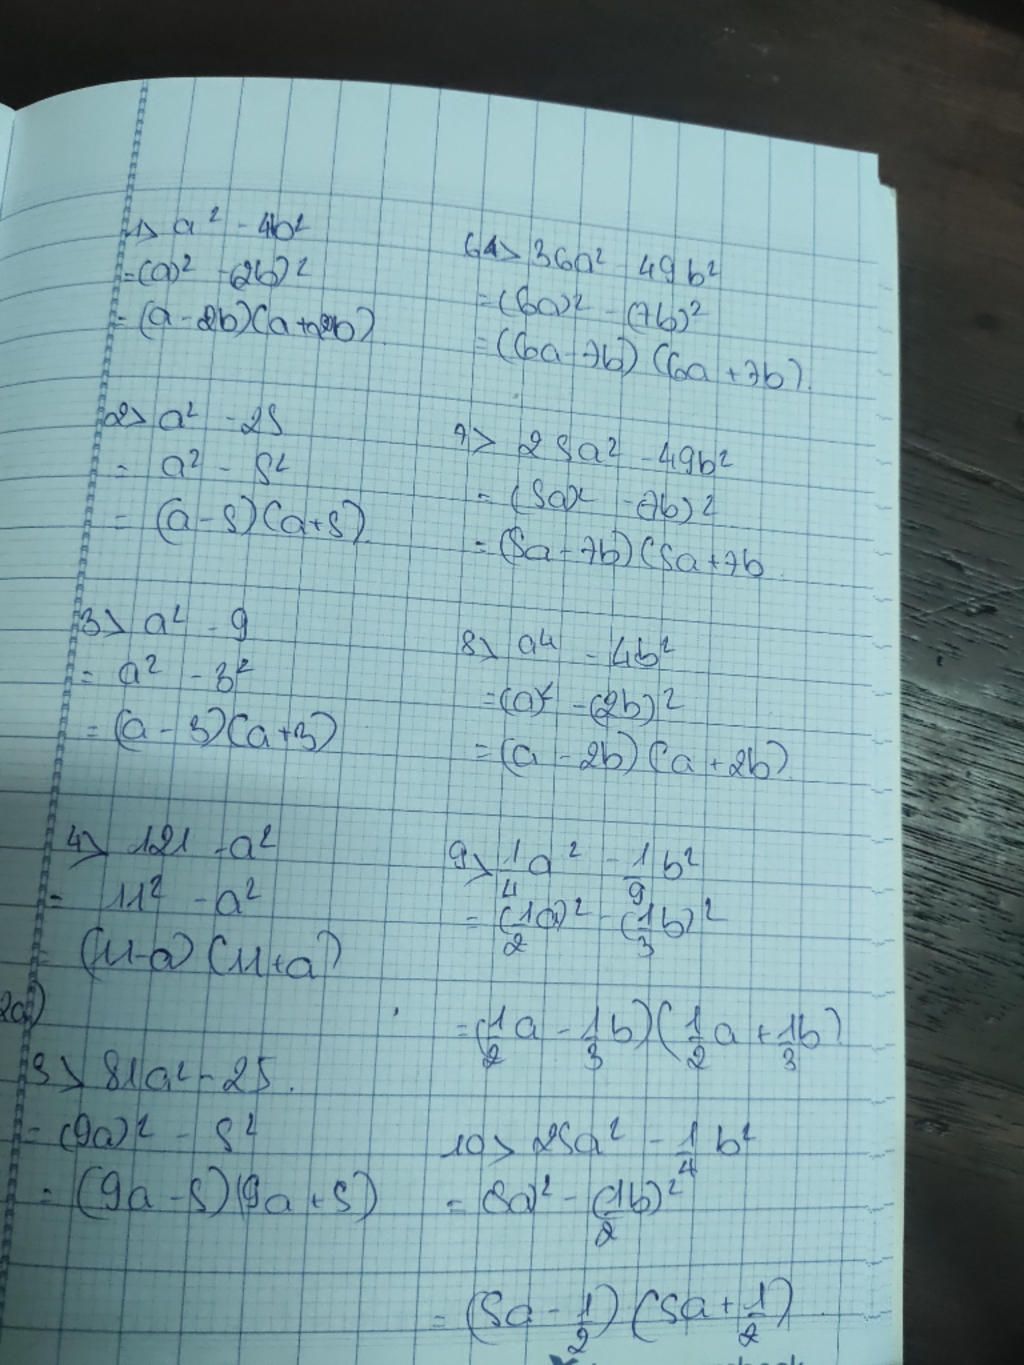 1> a² - 4b²
= (a)² - (2b)²
= (a - 2b)(a + 2b)
2> a² - 25
= a² - 5²
= (a - 5)(a + 5)
3> a² - 9
= a² - 3²
= (a - 3)(a + 3)
4> 121 - a²
= 11² - a²
= (11 - a)(11 + a)
2a)
5> 81a² - 25.
= (9a)² - 5²
= (9a - 5)(9a + 5)
6> 36a² 49b²
= (6a)² - (7b)²
= (6a - 7b)(6a + 7b).
7> 25a² - 49b²
= (5a)² - 7b)²
= (5a - 7b)(5a + 7b
8> a⁴ - 4b²
= (a)² - (2b)²
= (a - 2b)(a + 2b)
9> 1/4 a² - 1/9 b²
= (1/2 a)² - (1/3 b)²
= (1/2 a - 1/3 b)(1/2 a + 1/3 b)
10> 25a² - 1/4 b²
= (5a)² - (1/2 b)²
= (5a - 1/2)(5a + 1/2)